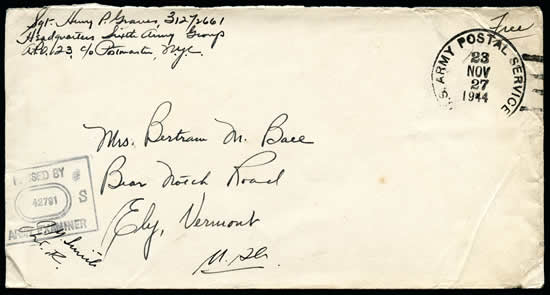 Sgt. Henry P. Graves, 31272661
Headquarters Sixth Army Group
A.P.O. 23, c/o Postmaster, N.Y.C.
Free
U.S. ARMY POSTAL SERVICE
23
NOV
27
1944
Mrs. Bertram M. Bace
Bear Notch Road
Ely, Vermont
U.S.A.
PASSED BY
42791
S
ARMY EXAMINER